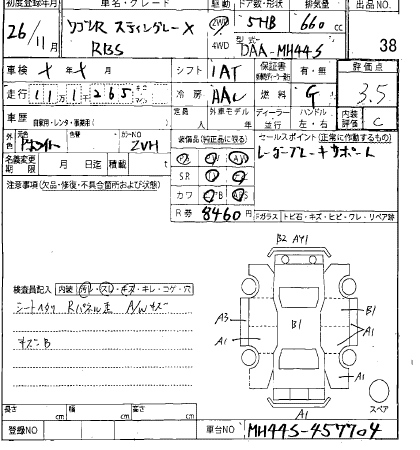 初度登録年月 車名・グレード 駆動 ドア数・形状 排気量 出品NO.
26/11月 ワゴンR スティングレーX 2WD 5HB 660 cc
RBS 4WD 型式 DAA-MH44S 38
車検 年 月 シフト IAT 保証書 有・無 評価点
走行 11万1265 冷房 AAC 燃料 G 3.5
車歴 自家用・レンタ・事業用( ) 定員 人 外車モデル 年 ディーラー 並行 ハンドル 左・右 内装評価 C
外色 元色 カラーNO ZVH 装備品(純正品に限る) セールスポイント(正常に作動するもの)
名義変更期限 月 日迄 積載 t レーダーブレーキサポート
注意事項(欠品・修復・不具合箇所および状態) SR
カワ
R券 8460 円 Fガラス トビ石・キズ・ヒビ・ワレ・リペア跡
B2 AY1
検査員記入 内装 汚レ・スレ・キズ・キレ・コゲ・穴
シートヘタリ Rパネル歪 A/Wキズ
キズB
A3
A1
B1
B1
A1
A1
A1
A1
スペア
長さ cm 幅 cm 高さ cm
登録NO 車台NO MH44S-457704